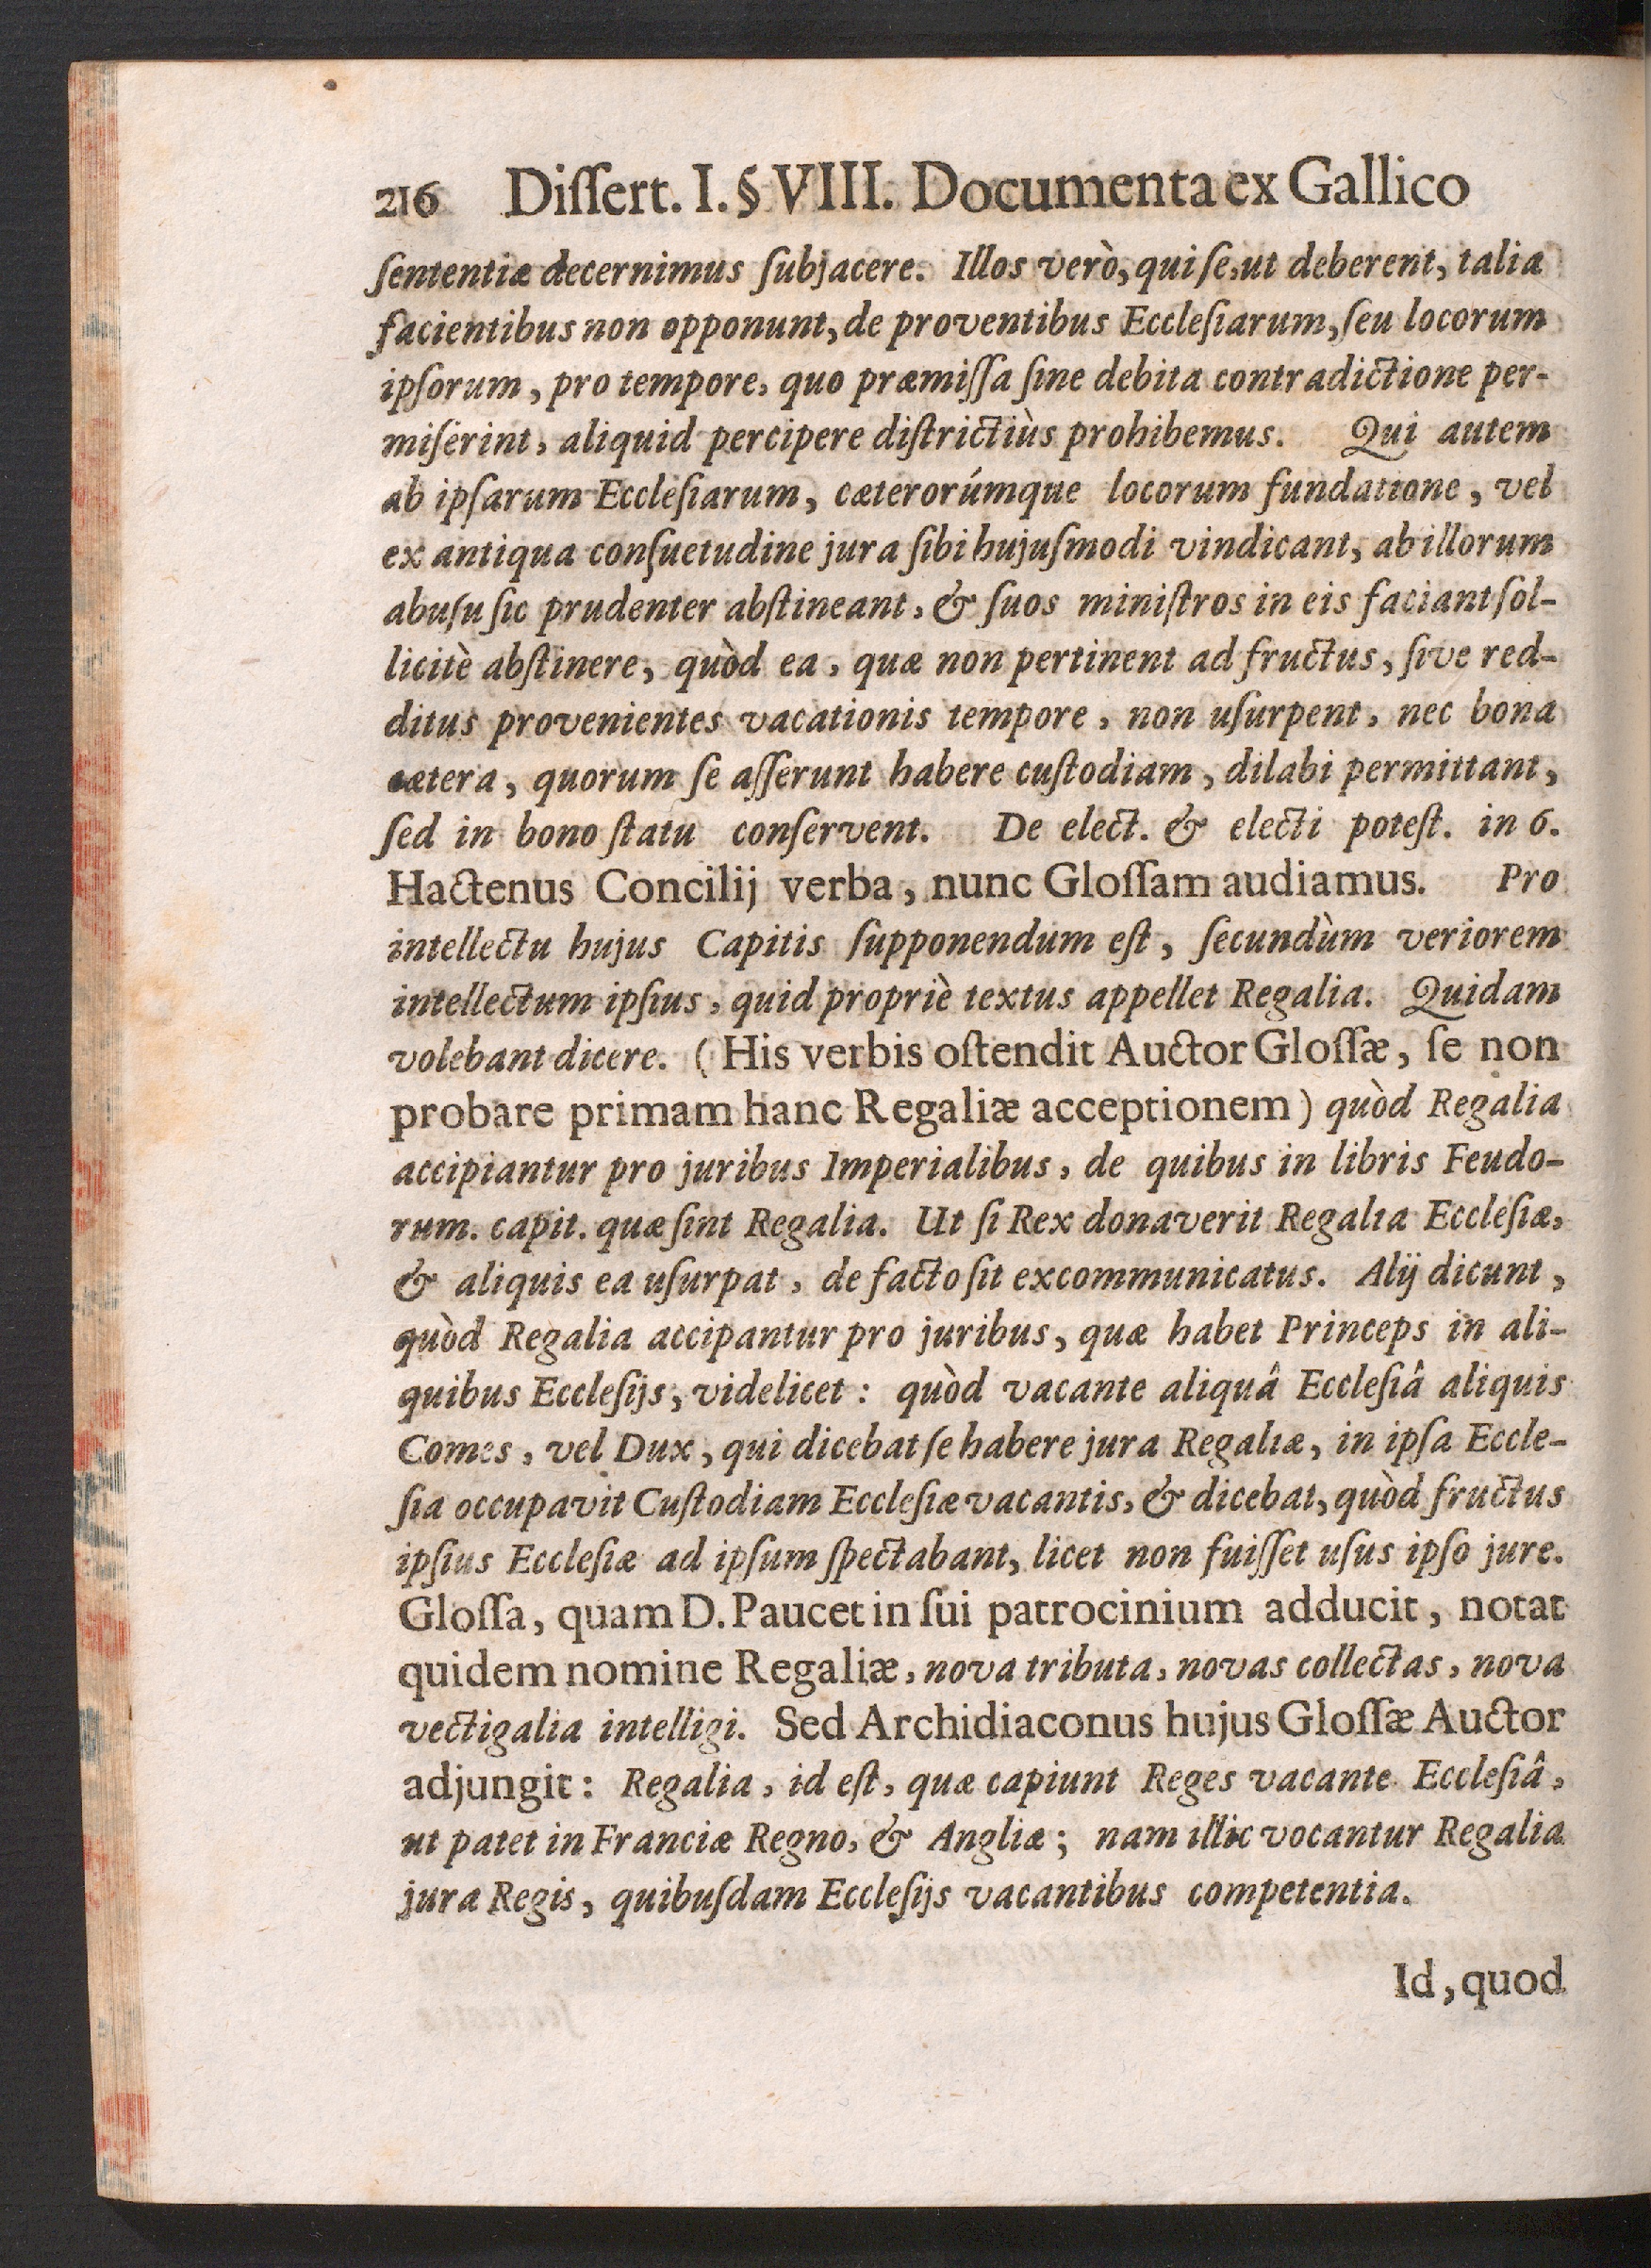 216 Diſſert. I. § VIII. Documenta ex Gallico
ſententiæ decernimus ſubjacere. Illos verò, qui ſe, ut deberent, talia
facientibus non opponunt, de proventibus Eccleſiarum, ſeu locorum
ipſorum, pro tempore, quo præmiſſa ſine debita contradictione per-
miſerint, aliquid percipere diſtrictiùs prohibemus. Qui autem
ab ipſarum Eccleſiarum, cæterorúmque locorum fundatione, vel
ex antiqua conſuetudine jura ſibi hujuſmodi vindicant, ab illorum
abuſu ſic prudenter abſtineant, & ſuos miniſtros in eis faciant ſol-
licitè abſtinere, quòd ea, quæ non pertinent ad fructus, ſive red-
ditus provenientes vacationis tempore, non uſurpent, nec bona
cætera, quorum ſe aſſerunt habere cuſtodiam, dilabi permittant,
ſed in bono ſtatu conſervent. De elect. & electi poteſt. in 6.
Hactenus Concilij verba, nunc Gloſſam audiamus. Pro
intellectu hujus Capitis ſupponendum eſt, ſecundùm veriorem
intellectum ipſius, quid propriè textus appellet Regalia. Quidam
volebant dicere. (His verbis oſtendit Auctor Gloſſæ, ſe non
probare primam hanc Regaliæ acceptionem) quòd Regalia
accipiantur pro juribus Imperialibus, de quibus in libris Feudo-
rum. capit. quæ ſint Regalia. Ut ſi Rex donaverit Regalia Eccleſiæ,
& aliquis ea uſurpat, de facto ſit excommunicatus. Alij dicunt,
quòd Regalia accipantur pro juribus, quæ habet Princeps in ali-
quibus Eccleſijs, videlicet: quòd vacante aliquâ Eccleſiâ aliquis
Comes, vel Dux, qui dicebat ſe habere jura Regaliæ, in ipſa Eccle-
ſia occupavit Cuſtodiam Eccleſiæ vacantis, & dicebat, quòd fructus
ipſius Eccleſiæ ad ipſum ſpectabant, licet non fuiſſet uſus ipſo jure.
Gloſſa, quam D. Paucet in ſui patrocinium adducit, notat
quidem nomine Regaliæ, nova tributa, novas collectas, nova
vectigalia intelligi. Sed Archidiaconus hujus Gloſſæ Auctor
adjungit: Regalia, id eſt, quæ capiunt Reges vacante Eccleſiâ,
ut patet in Franciæ Regno, & Angliæ; nam illic vocantur Regalia
jura Regis, quibuſdam Eccleſijs vacantibus competentia.
Id, quod